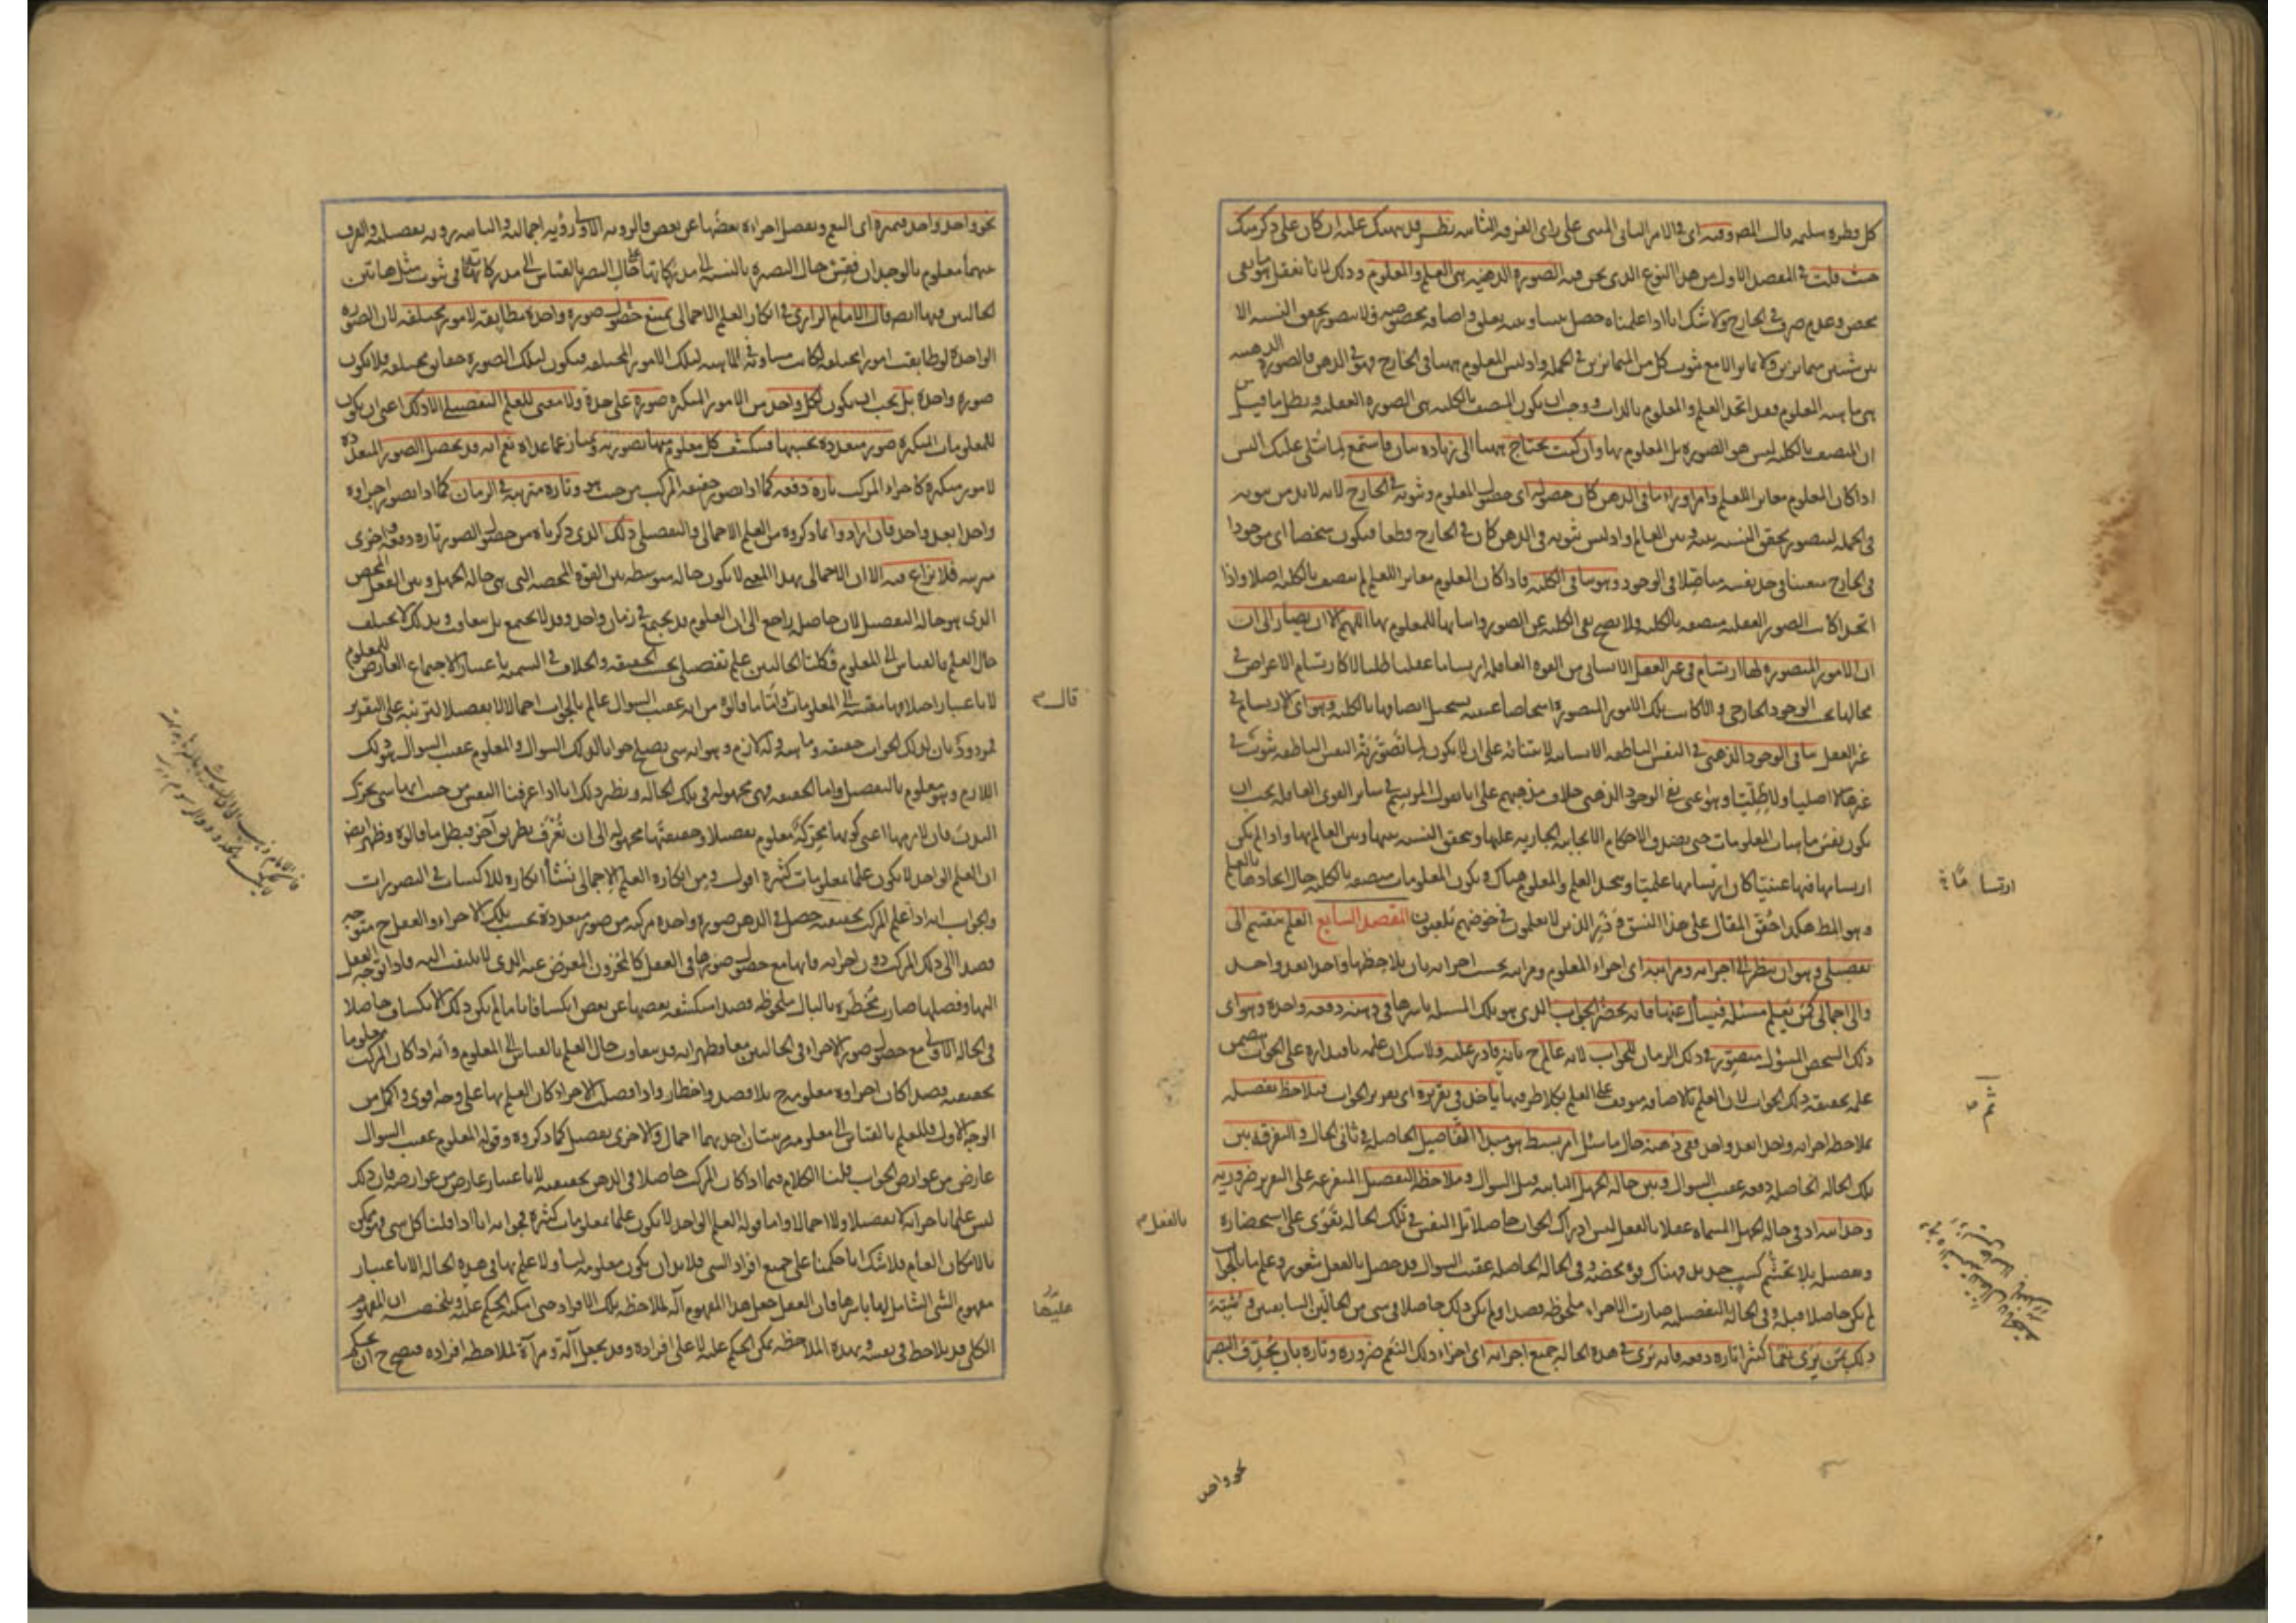 كل فطرة سليمة قال المصنف وفيه اى فى الامر الثانى المبنى على راى الفرقة الثانية نظر قد نبهتك عليه ان كان على ذكر منك
حيث قلت فى المقصد الاول من هذا النوع الذى نحن فيه الصورة الذهنية هى العلم والمعلوم وذلك لانا نعقل ما هو نفى
محض وعدم صرف فى الخارج ولا شك انا اذا علمناه حصل بيننا وبينه تعلق واضافة مخصوصة ولا يتصور تحقق النسبة الا
بين شيئين متمايزين ولا تمايز الا مع ثبوت كل من المتمايزين فى الجملة واذ ليس المعلوم ههنا فى الخارج فهو فى الذهن فالصورة الذهنية
هى ماهية المعلوم فقد اتحد العلم والمعلوم بالذات ووجب ان يكون المتصف بالكلية هى الصورة العقلية وبطل ما قيل من
ان المتصف بالكلية ليس هو الصورة بل المعلوم بها وان كنت تحتاج ههنا الى زيادة بيان فاستمع لما يتلى عليك اليس
اذا كان المعلوم مغايرا للعلم وامرا وراء ما فى الذهن كان حصوله اى حصول المعلوم وثبوته فى الخارج لانه لا بد من ثبوته
فى الجملة ليتصور تحقق النسبة بينه وبين العالم واذ ليس ثبوته فى الذهن كان فى الخارج قطعا فيكون شخصا اى موجودا
فى الخارج متعينا فى حد نفسه متاصلا فى الوجود وهو ينافى الكلية فاذا كان المعلوم مغايرا للعلم لم يتصف بالكلية اصلا واذا
اتحدا كانت الصور العقلية متصفة بالكلية ولا يصح نفى الكلية عن الصور واثباتها للمعلوم بها اللهم الا ان يصار الى ان
ان الامور المتصورة لها ارتسام فى غير العقل الانسانى من القوة العاقلة ارتساما عقليا ظليا لا كارتسام الاعراض فى
محالها بحسب الوجود الخارجى والا كانت تلك الامور المتصورة اشخاصا عينية يستحيل اتصافها بالكلية وهو اى الارتسام فى
غير العقل ينافى الوجود الذهنى فى النفس الناطقة الانسانية لابتنائه على ان لا يكون لما تصورته النفس الناطقة ثبوت فى
غيرها لا اصليا ولا ظليا وهو اعنى نفى الوجود الذهنى خلاف مذهبهم على انا نقول المرتسم فى سائر القوى العاقلة يجب ان
يكون نفس ماهيات المعلومات حتى يصدق الاحكام الايجابية الجارية عليها ويتحقق النسبة بينها وبين العالم بها واذا لم يكن
ارتسامها فيها عينيا كان ارتسامها علميا ويتحد العلم والمعلوم هناك فيكون المعلومات متصفة بالكلية حال اتحادها بالعلم
وهو المط هكذا حقق المقال على هذا النسق فذر الذين لا يعلمون فى خوضهم يلعبون المقصد السابع العلم ينقسم الى
تفصيلى وهو ان ينظر الى اجزائه ومراتبه اى اجزاء المعلوم ومراتبه بحسب اجزائه بان يلاحظها واحدا بعد واحد
والى اجمالى كمن يعلم مسئلة فيسأل عنها فانه يحضر الجواب الذى هو تلك المسئلة باسرها فى ذهنه دفعة واحدة وهو اى
ذلك الشخص المسؤل متصور فى ذلك الزمان للجواب لانه عالم ح بانه قادر عليه ولا شك ان علمه باقتداره على الجواب يتضمن
علمه بحقيقة ذلك الجواب لان العلم بالاضافة موقوف على العلم بكلا طرفيها ثم ياخذ فى تقريره اى تقرير الجواب فيلاحظ تفصيله
بملاحظة اجزائه واحدا بعد واحد ففى ذهنه حال ما سئل امر بسيط هو مبدأ التفاصيل الحاصلة فى ثانى الحال والتفرقة بين
تلك الحالة الحاصلة دفعة عقيب السوال وبين حالة الجهل الثابتة قبل السوال وملاحظة التفصيل المتفرعة على التقرير ضرورية
وجدانية اذ فى حالة الجهل المسماة عقلا بالفعل ليس ادراك الجواب حاصلا بل النفس فى تلك الحالة تقوى على استحضاره
وتفصيله بلا تجشم كسب جديد فهناك قوة محضة وفى الحالة الحاصلة عقيب السوال قد حصل بالفعل شعور وعلم ما بالجواب
لم يكن حاصلا قبله وفى الحالة التفصيلية صارت الاجزاء ملحوظة قصدا ولم يكن ذلك حاصلا فى شى من الحالتين السابقتين ويشبه
ذلك بمن يرى نعما كثيرا تارة دفعة فانه يرى فى هذه الحالة جميع اجزائه اى اجزاء ذلك النعم ضرورة وتارة بان يحدق البصر
ارتساما
ثم
بالفعل
نحو واحد
نحو واحد واحد فيميزه اى النعم ويفصل اجزاءه بعضها عن بعض فالروية الاولى رؤية اجمالية والثانية رؤية تفصيلية والفرق
بينهما معلوم بالوجدان فقس حال البصيرة بالنسبة الى مدركاتها على حال البصر بالقياس الى مدركاته فى ثبوت مثل هاتين
الحالتين فيها ايضا قال الامام الرازى فى انكار العلم الاجمالى يمتنع حصول صورة واحدة مطابقة لامور مختلفة لان الصورة
الواحدة لو طابقت امورا مختلفة لكانت مساوية فى الماهية لتلك الامور المختلفة فيكون لتلك الصورة حقائق مختلفة فلا يكون
صورة واحدة بل يجب ان يكون لكل واحد من الامور المتكثرة صورة على حدة ولا معنى للعلم التفصيلى الا ذلك اعنى ان يكون
للمعلومات المتكثرة صور متعددة بحسبها فينكشف كل معلوم منها بصورته ويمتاز عما عداه نعم انه قد يحصل الصور المتعددة
لامور متكثرة كاجزاء المركب تارة دفعة كما اذا تصور حقيقة المركب من حيث هو وتارة مترتبة فى الزمان كما اذا تصور اجزاؤه
واحدا بعد واحد فان ارادوا بما ذكروه من العلم الاجمالى والتفصيلى ذلك الذى ذكرناه من حصول الصور تارة دفعة واخرى
مرتبة فلا نزاع فيه الا ان الاجمالى بهذا المعنى لا يكون حالة متوسطة بين القوة المحضة التى هى حالة الجهل وبين الفعل المحض
الذى هو حالة التفصيل لان حاصله راجع الى ان العلوم قد يجتمع فى زمان واحد وقد لا يجتمع بل يتعاقب وبذلك لا يختلف
حال العلم بالقياس الى المعلوم فكلتا الحالتين علم تفصيلى بحسب الحقيقة والخلاف فى التسمية باعتبار الاجتماع العارض للمعلوم
لا باعتبار اختلافها مقيسة الى المعلومات واما ما قالوه من انه عقيب السوال عالم بالجواب اجمالا لا تفصيلا لترتبه على التقرير
فمردود بان لذلك الجواب حقيقة وماهية وله لازم وهو انه شى يصلح جوابا لذلك السوال والمعلوم عقيب السوال هو ذلك
اللازم وهو معلوم بالتفصيل واما الحقيقة فهى مجهولة فى تلك الحالة ونظير ذلك انا اذا عرفنا النفس من حيث انها شى يحرك
البدن فان لازمها اعنى كونها محركة معلوم تفصيلا وحقيقتها مجهولة الى ان تعرف بطريق آخر فبطل ما قالوه وظهر ايضا
ان العلم الواحد لا يكون علما بمعلومات كثيرة اقول ومن انكاره العلم الاجمالى نشأ انكاره للاكتساب فى التصورات
والجواب انه اذا علم المركب بحقيقته حصل فى الذهن صورة واحدة مركبة من صور متعددة بحسب تلك الاجزاء والعقل ح متوجه
قصدا الى ذلك المركب دون اجزائه فانها مع حصول صورها فى العقل كالمخزون المعرض عنه الذى لا يلتفت اليه فاذا توجه العقل
اليها وفصلها صارت مخطرة بالبال ملحوظة قصدا منكشفة بعضها عن بعض انكشافا تاما لم يكن ذلك الانكشاف حاصلا
فى الحالة الاولى مع حصول صور الاجزاء فى الحالتين معا وظهر انه قد يتفاوت حال العلم بالقياس الى المعلوم وانه اذا كان المركب معلوما
بحقيقته قصدا كان اجزاؤه معلومة ح بلا قصد واخطار واذا فصلت الاجزاء كان العلم بها على وجه اقوى واكمل من
الوجه الاول فللعلم بالقياس الى معلومه مرتبتان احديهما اجمال والاخرى تفصيل كما ذكروه وقوله المعلوم عقيب السوال
عارض من عوارض الجواب قلنا الكلام فيما اذا كان المركب حاصلا فى الذهن بحقيقته لا باعتبار عارض من عوارضه فان ذلك
ليس علما باجزائه لا تفصيلا ولا اجمالا واما قوله العلم الواحد لا يكون علما بمعلومات كثيرة فجوابه انا اذا قلنا كل شى فهو ممكن
بالامكان العام فلا شك انا حكمنا على جميع افراد الشى فلا بد ان يكون معلومة لنا ولا علم بها فى هذه الحالة الا باعتبار
مفهوم الشى الشامل لها باسرها فان العقل جعل هذا المفهوم آلة لملاحظة تلك الافراد حتى امكنه الحكم عليها وتلخيصه ان المفهوم
الكلى قد يلاحظ فى نفسه وبهذه الملاحظة يمكن الحكم عليه لا على افراده وقد يجعل آلة ومرآة لملاحظة افراده فيصح ح ان يحكم
قال
عليها